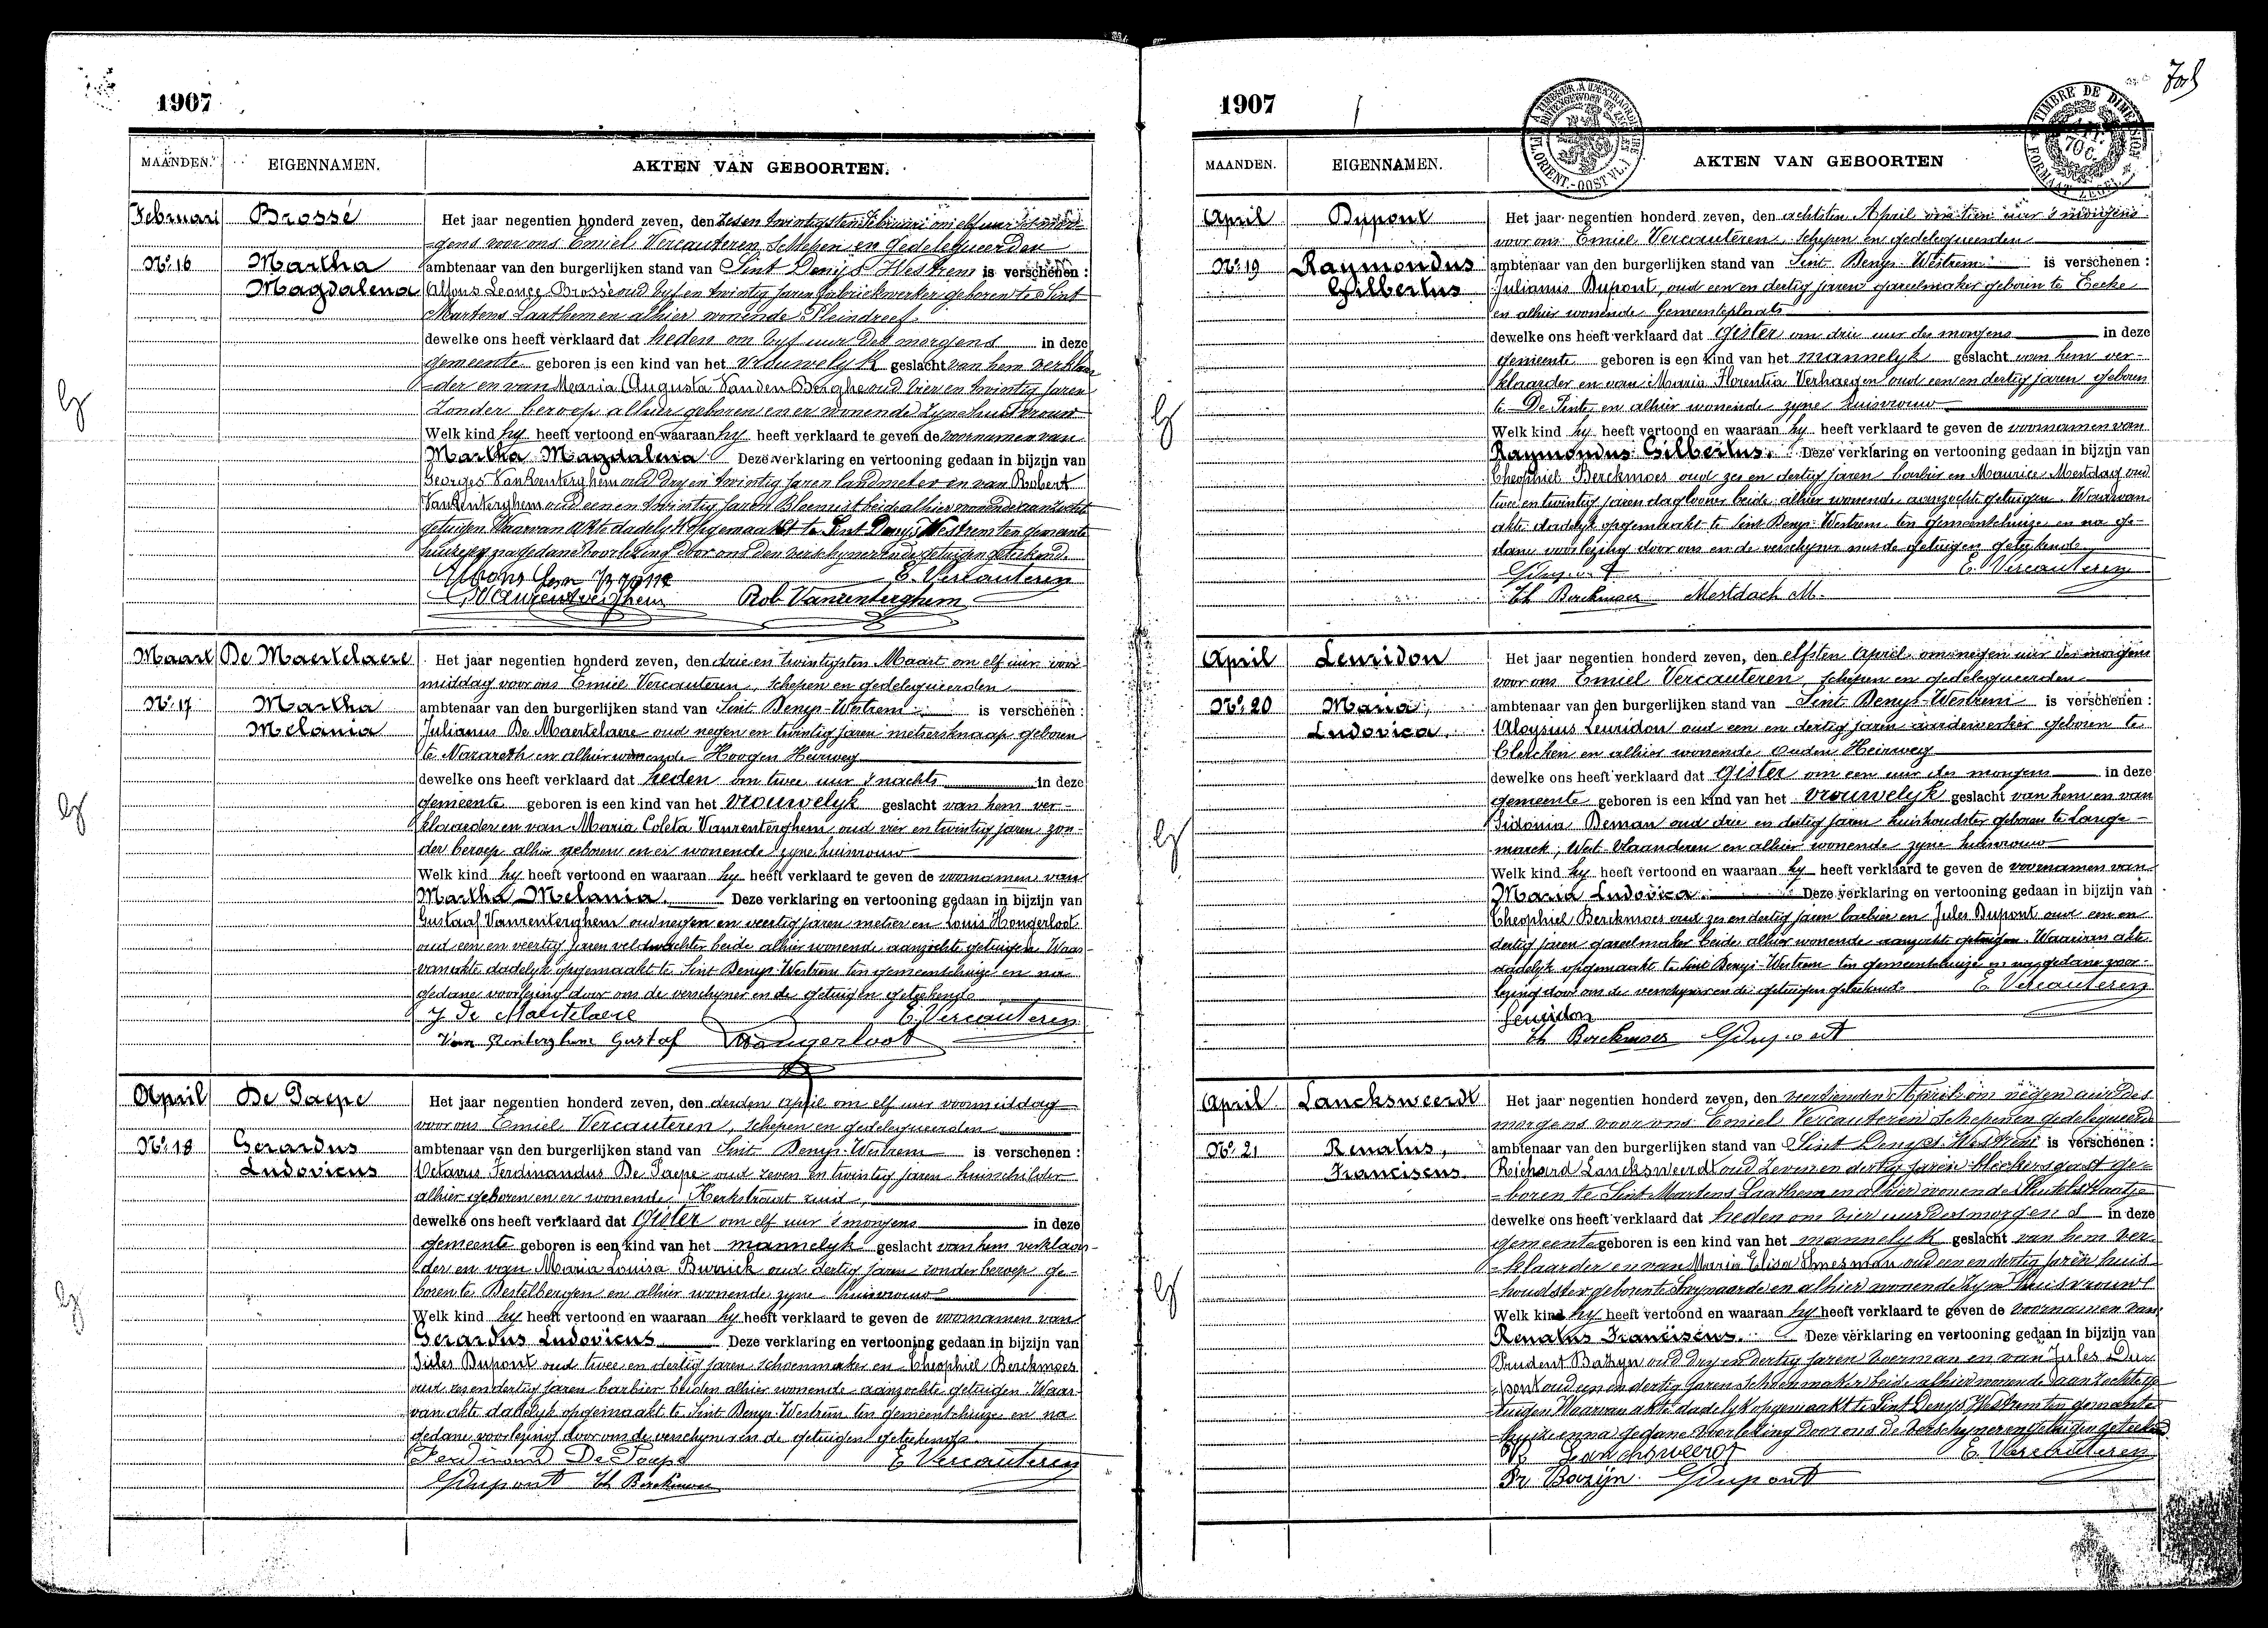 1907
MAANDEN. EIGENNAMEN. AKTEN VAN GEBOORTEN.
Februari Brossé Het jaar negentien honderd zeven, den zes en twintigsten Februari om elf uur des mor-
gens voor ons Emiel Vercauteren, schepen en gedelegueerden
No. 16 Martha ambtenaar van den burgerlijken stand van Sint Denijs Westrem is verschenen :
Magdalena Alfons Leonce Brossé oud vyf en twintig jaren fabriekwerker geboren te Sint
Martens Laathem en alhier wonende Pleindreef
dewelke ons heeft verklaard dat heden om vyf uur des morgens in deze
gemeente geboren is een kind van het vrouwelyk geslacht van hem verklaar
-der en van Maria Augusta Vanden Berghe oud vier en twintig jaren
zonder beroep alhier geboren en er wonende zyne huisvrouw
Welk kind hy heeft vertoond en waaraan hy heeft verklaard te geven de voornamen van
Martha Magdalena Deze verklaring en vertooning gedaan in bijzijn van
Georges Vanrenterghem oud dry en twintig jaren landmeter en van Robert
Vanrenterghem oud een en twintig jaren Bloemist beide alhier wonende aanzochte
getuigen Waarvan akte dadelyk opgemaakt te Sint Denys Westrem ten gemeente
huize en na gedane voorlezing door ons den verschyner en de getuigen geteekend.
E. Vercauteren
G Vanrenterghem Rob Vanrenterghem
Maart De Maertelaere Het jaar negentien honderd zeven, den drie en twintigsten Maart om elf uur voor-
middag voor ons Emiel Vercauteren, schepen en gedelegueerden
No. 17 Martha ambtenaar van den burgerlijken stand van Sint Denys-Westrem is verschenen :
Melania Julianus De Maertelaere oud negen en twintig jaren metsersknaap geboren
te Nazareth en alhier wonende Hoogen Heirweg
dewelke ons heeft verklaard dat heden om twee uur 's nachts in deze
gemeente geboren is een kind van het vrouwelyk geslacht van hem ver-
klaarder en van Maria Coleta Vanrenterghem oud vier en twintig jaren zon-
der beroep alhier geboren en er wonende zyne huisvrouw
Welk kind hy heeft vertoond en waaraan hy heeft verklaard te geven de voornamen van
Martha Melania. Deze verklaring en vertooning gedaan in bijzijn van
Gustaaf Vanrenterghem oud negen en veertig jaren metser en Louis Hongerloot
oud een en veertig jaren veldwachter beide alhier wonende aanzochte getuigen. Waar-
van akte dadelyk opgemaakt te Sint Denys-Westrem ten gemeentehuize en na
gedane voorlezing door ons de verschyner en de getuigen geteekend
J De Maertelaere E. Vercauteren
Van Renterghem Gustaf Hongerloot
April De Paepe Het jaar negentien honderd zeven, den derden April om elf uur voormiddag
voor ons Emiel Vercauteren, schepen en gedelegueerden
No. 18 Gerardus ambtenaar van den burgerlijken stand van Sint Denys-Westrem is verschenen :
Ludovicus Octavus Ferdinandus De Paepe oud zeven en twintig jaren huisschilder
alhier geboren en er wonende Kerkstraat zuid,
dewelke ons heeft verklaard dat Gister om elf uur 's morgens in deze
gemeente geboren is een kind van het mannelyk geslacht van hem verklaar-
der en van Maria Louisa Burrick oud dertig jaren zonder beroep ge-
boren te Destelbergen en alhier wonende zyne huisvrouw
Welk kind hy heeft vertoond en waaraan hy heeft verklaard te geven de voornamen van
Gerardus Ludovicus Deze verklaring en vertooning gedaan in bijzijn van
Jules Dupont oud twee en dertig jaren schoenmaker en Theophiel Berckmoes
oud zes en dertig jaren barbier beiden alhier wonende aanzochte getuigen. Waar-
van akte dadelyk opgemaakt te Sint Denys-Westrem ten gemeentehuize en na
gedane voorlezing door ons de verschyner en de getuigen geteekend.
Ferdinand De Paepe E Vercauteren
J Dupont Th Berckmoes
1907
MAANDEN. EIGENNAMEN. AKTEN VAN GEBOORTEN
April Dupont Het jaar negentien honderd zeven, den achtsten April om tien uur 's morgens
voor ons Emiel Vercauteren schepen en gedelegueerden
No. 19 Raymondus ambtenaar van den burgerlijken stand van Sint Denys-Westrem is verschenen :
Gilbertus Julianus Dupont, oud een en dertig jaren gareelmaker geboren te Eecke
en alhier wonende Gemeenteplaats
dewelke ons heeft verklaard dat Gister om drie uur des morgens in deze
gemeente geboren is een kind van het mannelyk geslacht van hem ver-
klaarder en van Maria Florentia Verhaegen oud een en dertig jaren geboren
te De Pinte en alhier wonende zyne huisvrouw
Welk kind hy heeft vertoond en waaraan hy heeft verklaard te geven de voornamen van
Raymondus Gilbertus. Deze verklaring en vertooning gedaan in bijzijn van
Theophiel Berckmoes oud zes en dertig jaren barbier en Maurice Mestdag oud
twee en twintig jaren daglooner beide alhier wonende aanzochte getuigen. Waarvan
akte dadelyk opgemaakt te Sint Denys-Westrem ten gemeentehuize en na ge-
dane voorlezing door ons en de verschyner en de getuigen geteekend
J Dupont E. Vercauteren
Th Berckmoes Mestdach M.
April Leuridon Het jaar negentien honderd zeven, den elfsten April om negen uur des morgens
voor ons Emiel Vercauteren, schepen en gedelegueerden
No. 20 Maria, ambtenaar van den burgerlijken stand van Sint Denys-Westrem is verschenen :
Ludovica. Aloysius Leuridon oud een en dertig jaren aardewerker geboren te
Clercken en alhier wonende Ouden Heirweg
dewelke ons heeft verklaard dat Gister om een uur des morgens in deze
gemeente geboren is een kind van het vrouwelyk geslacht van hem en van
Sidonia Deman oud drie en dertig jaren huishoudster geboren te Lange-
marck, West-Vlaanderen en alhier wonende zyne huisvrouw
Welk kind hy heeft vertoond en waaraan hy heeft verklaard te geven de voornamen van
Maria Ludovica. Deze verklaring en vertooning gedaan in bijzijn van
Theophiel Berckmoes oud zes en dertig jaren barbier en Jules Dupont oud een en
dertig jaren gareelmaker beide alhier wonende aanzochte getuigen. Waarvan akte
dadelyk opgemaakt te Sint Denys-Westrem ten gemeentehuize en na gedane voor-
lezing door ons de verschyner en de getuigen geteekend E Vercauteren
Leuridon
Th Berckmoes J Dupont
April Lancksweerdt Het jaar negentien honderd zeven, den veertienden April om negen uur des
morgens voor ons Emiel Vercauteren schepen en gedelegueerde
No. 21 Renatus, ambtenaar van den burgerlijken stand van Sint Denys Westrem is verschenen :
Franciscus. Reichard Lancksweerdt oud zeven en dertig jaren bliekersgast ge-
-boren te Sint Martens Laathem en alhier wonende
dewelke ons heeft verklaard dat heden om vier uur des morgens in deze
gemeente geboren is een kind van het mannelyk geslacht van hem ver-
-klaarder en van Maria Elisa oud een en dertig jaren huis
-houdster geboren te Swynaarde en alhier wonende zyne huisvrouwe
Welk kind hy heeft vertoond en waaraan hy heeft verklaard te geven de voornamen van
Renatus Franciscus. Deze verklaring en vertooning gedaan in bijzijn van
Prudent Bazyn oud dry en dertig jaren voerman en van Jules Du-
-pont oud een en dertig jaren schoenmaker beide alhier wonende aanzochte ge
-tuigen Waarvan akte dadelyk opgemaakt te Sint Denys Westrem ten gemeente
-huize en na gedane voorlezing door ons de verschyner en getuigen geteekend.
R Lancksweerdt E. Vercauteren
Pr Bazijn J Dupont